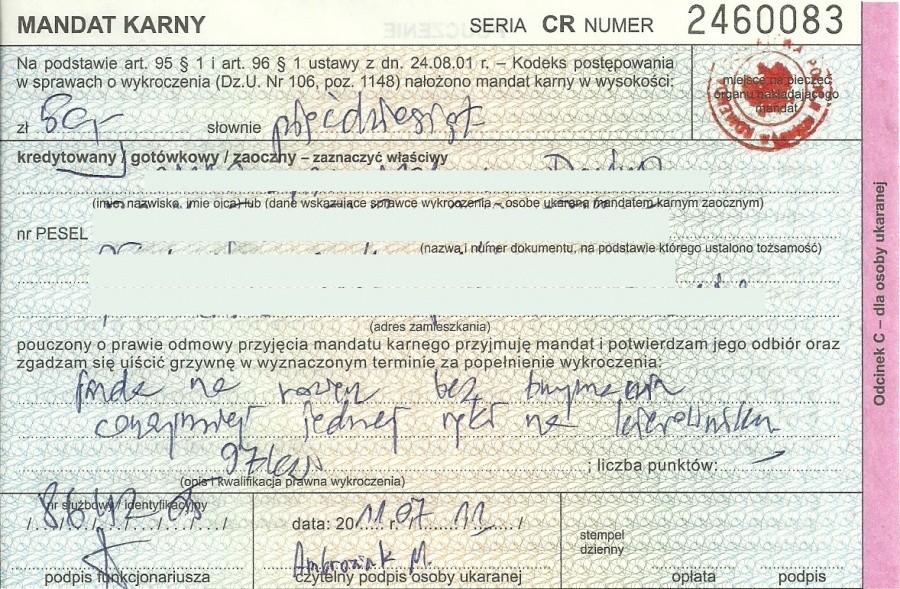 MANDAT KARNY SERIA CR NUMER 2460083
Na podstawie art. 95 § 1 i art. 96 § 1 ustawy z dn. 24.08.01 r. – Kodeks postępowania
w sprawach o wykroczenia (Dz.U. Nr 106, poz. 1148) nałożono mandat karny w wysokości:
miejsce na pieczęć
organu nakładającego
mandat
zł 50,- słownie pięćdziesiąt
kredytowany / gotówkowy / zaoczny – zaznaczyć właściwy
(imię, nazwisko, imię ojca) lub (dane wskazujące sprawcę wykroczenia – osobę ukaraną mandatem karnym zaocznym)
nr PESEL
(nazwa i numer dokumentu, na podstawie którego ustalono tożsamość)
(adres zamieszkania)
pouczony o prawie odmowy przyjęcia mandatu karnego przyjmuję mandat i potwierdzam jego odbiór oraz
zgadzam się uiścić grzywnę w wyznaczonym terminie za popełnienie wykroczenia:
jazda na rowerze bez trzymania
conajmniej jednej ręki na kierowniku
97 ; liczba punktów:
(opis i kwalifikacja prawna wykroczenia)
nr służbowy / identyfikacyjny
data: 2011 r. 07 11
stempel
dzienny
Ambroziak M.
podpis funkcjonariusza czytelny podpis osoby ukaranej opłata podpis
Odcinek C – dla osoby ukaranej